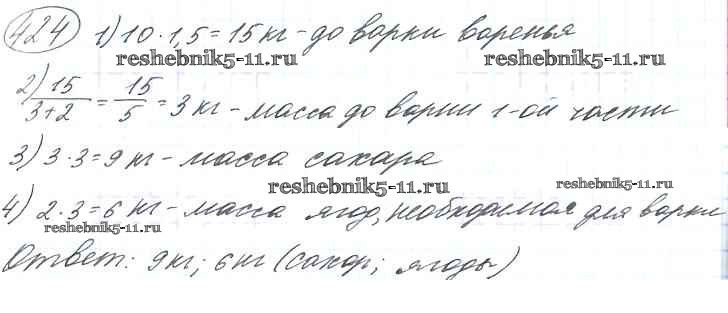 424 1) 10·1,5=15 кг - до варки варенья
reshebnik5-11.ru reshebnik5-11.ru
2) 15/(3+2) = 15/5 = 3 кг - масса до варки 1-ой части
3) 3·3=9 кг - масса сахара
reshebnik5-11.ru reshebnik5-11.ru
4) 2·3=6 кг - масса ягод, необходимая для варки
reshebnik5-11.ru
Ответ: 9кг; 6кг (сахар; ягоды)